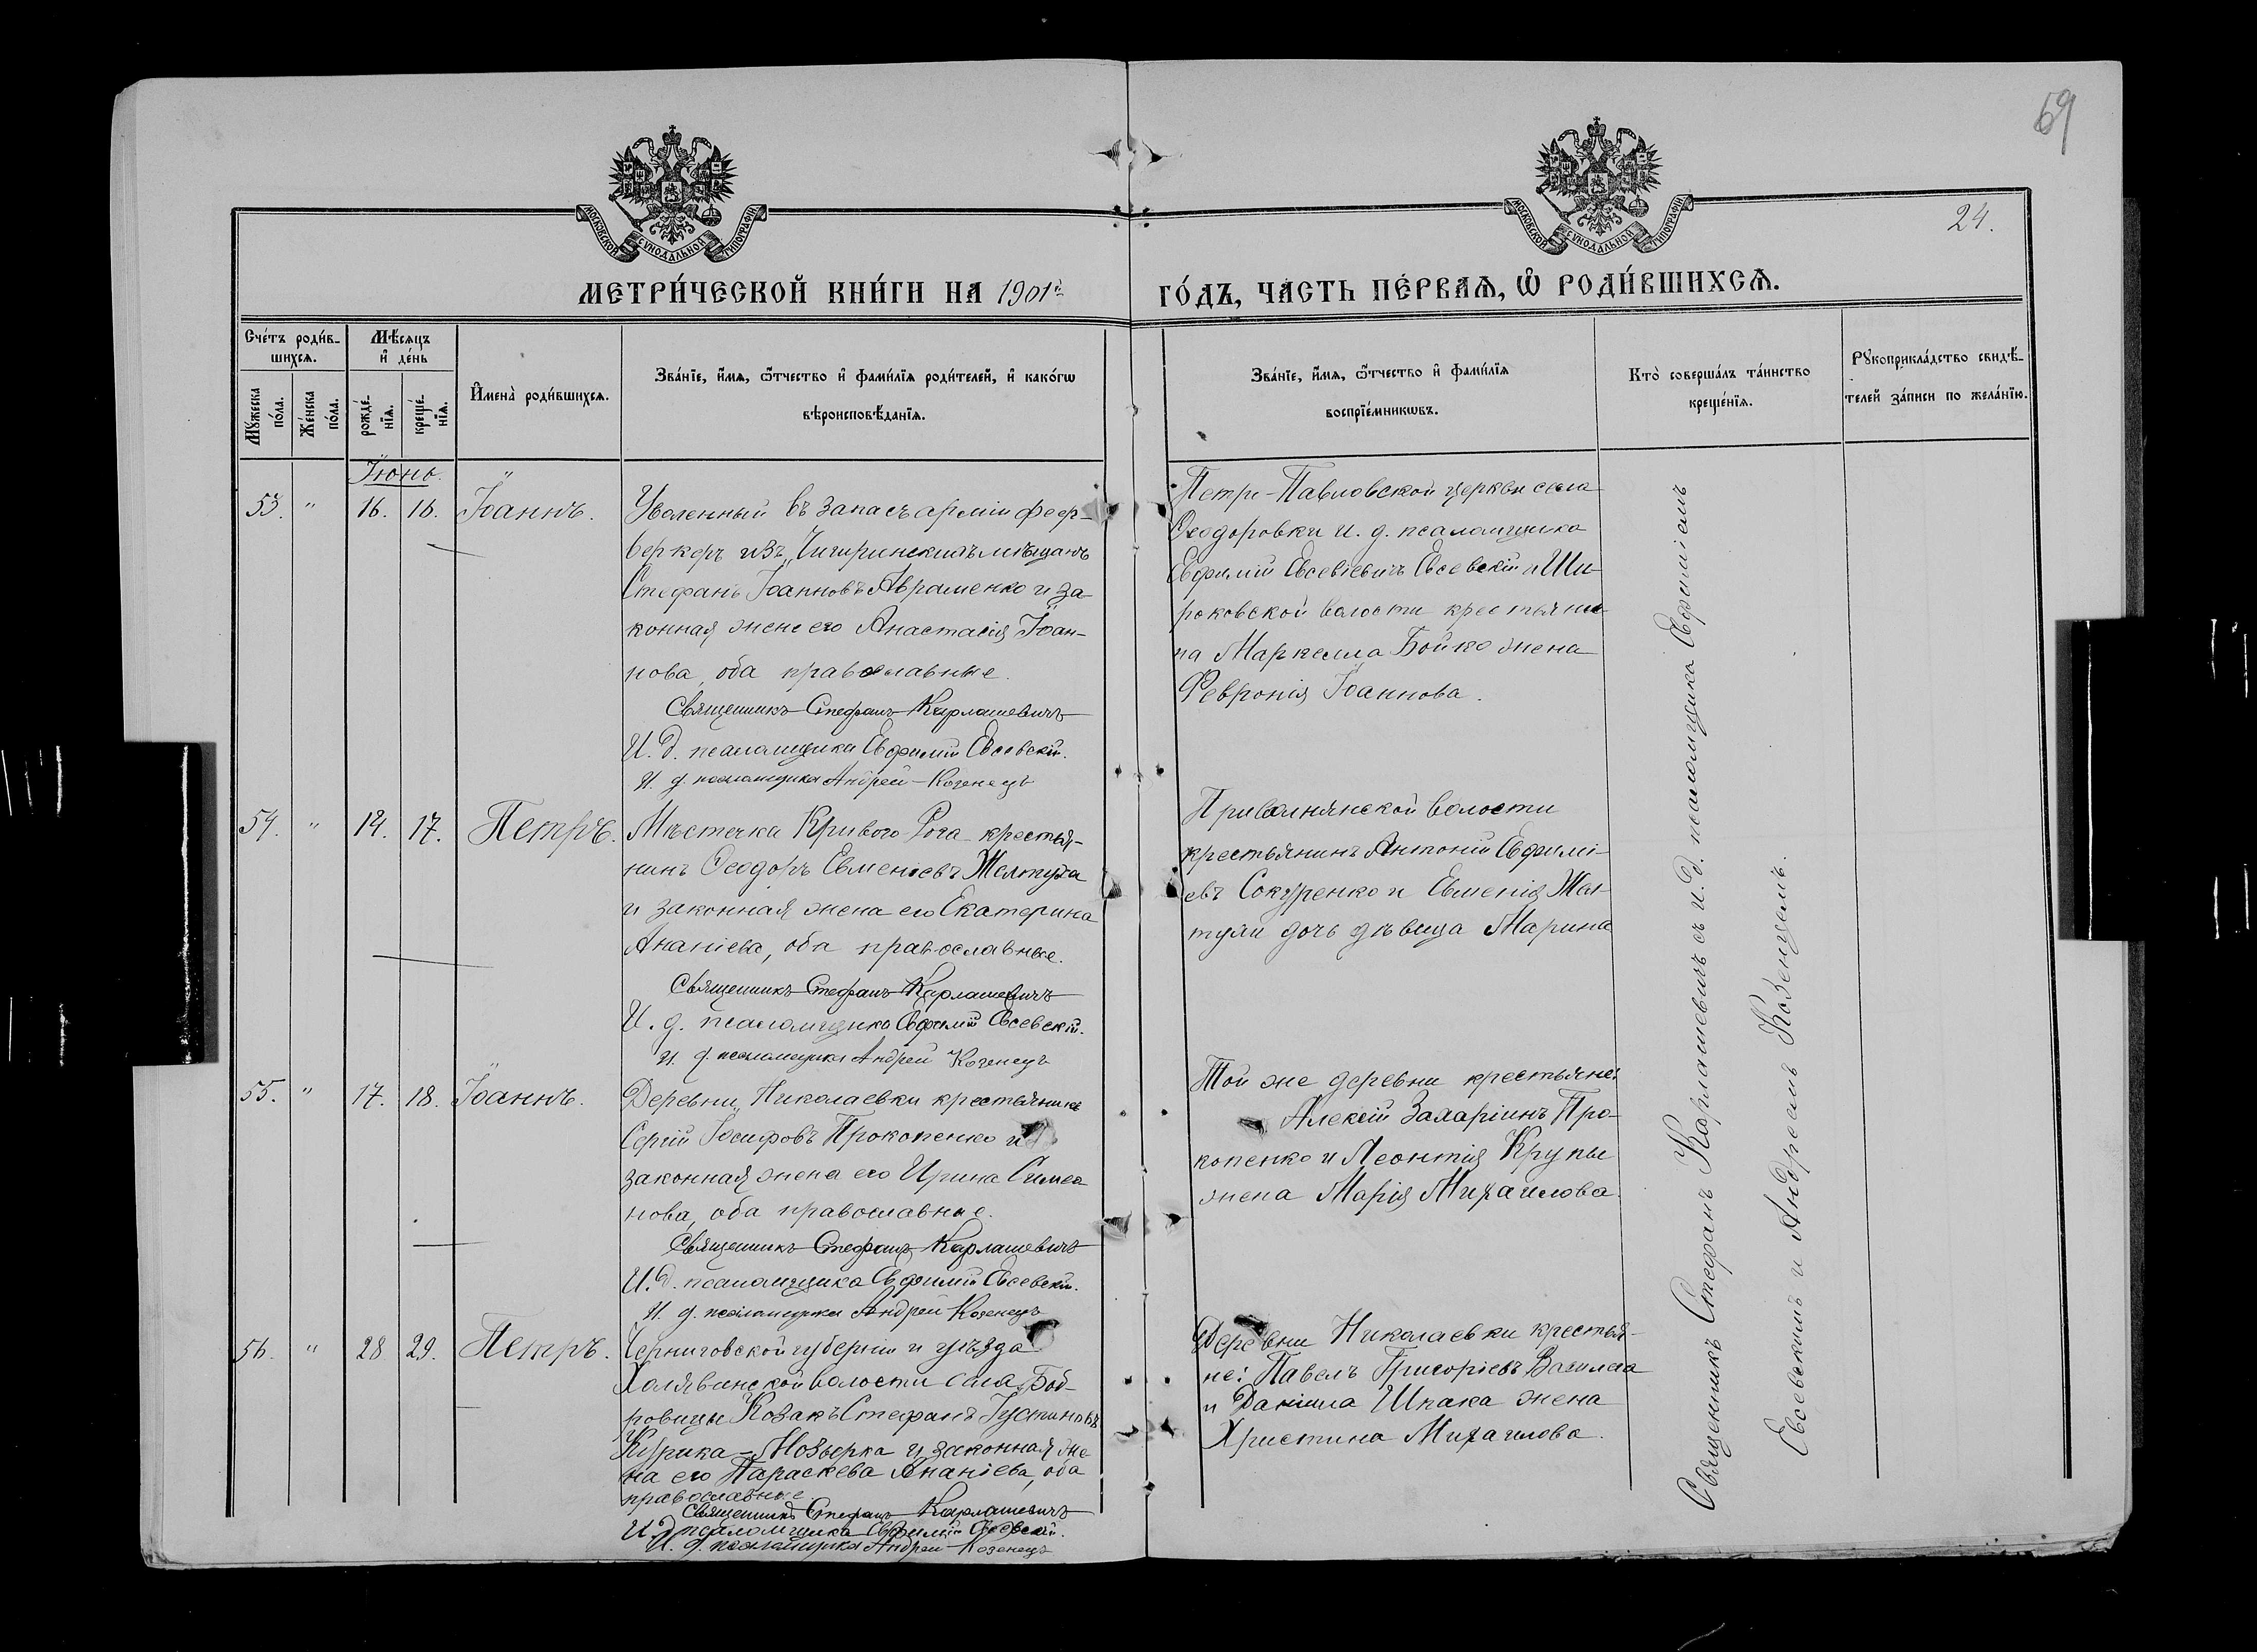 69
24.
МОСКОВСКОЙ СѴНОДАЛЬНОЙ ТИПОГРАФІИ
МОСКОВСКОЙ СѴНОДАЛЬНОЙ ТИПОГРАФІИ
МЕТРИ́ЧЕСКОЙ КНИ́ГИ НА 1901й
ГО́ДЪ, ЧА́СТЬ ПЕ́РВАѦ, Ѡ҆ РОДИ́ВШИХСѦ.
Сче́тъ роди́в-
шихсѧ.
Мꙋ́жеска по́ла.
Же́нска по́ла.
Мѣ́сѧцъ
и҆ де́нь
рожде́-
нїѧ.
креще́-
нїѧ.
И҆мена̀ роди́вшихсѧ.
Зва́нїе, и҆́мѧ, ѻ҆́тчество и҆ фами́лїѧ роди́телей, и҆ како́гѡ
вѣроисповѣ́данїѧ.
Зва́нїе, и҆́мѧ, ѻ҆́тчество и҆ фами́лїѧ
воспрїе́мникѡвъ.
Кто̀ соверша́лъ та́инство
креще́нїѧ.
Рꙋкоприкла́дство свидѣ́-
телей за́писи по жела́нїю.
Іюнь.
53. " 16. 16. Іоаннъ.
Уволенный въ запасъ арміи феер-
веркеръ изъ Чигиринскихъ мѣщанъ
Стефанъ Іоанновъ Авраменко и за-
конная жена его Анастасія Іоан-
нова, оба православные.
Священникъ Стефанъ Карлашевичъ
И. д. псаломщика Евфимій Евсевскій.
И. д. псаломщика Андрей Козенецъ
Петро-Павловской церкви села
Ѳеодоровки и. д. псаломщика
Евфимій Евсевіевичъ Евсевскій и Ши-
роковской волости крестьяни-
на Маркелла Бойко жена
Февронія Іоаннова.
54. " 14. 17. Петръ.
Мѣстечка Кривого Рога крестья-
нинъ Ѳеодоръ Евменіевъ Желтуха
и законная жена его Екатерина
Ананіева, оба православные.
Священникъ Стефанъ Карлашевичъ
И. д. псаломщика Евфимій Евсевскій.
И. д. псаломщика Андрей Козенецъ
Привольнянской волости
крестьянинъ Антоній Евфимі-
евъ Сокуренко и Евменія Жел-
тухи дочь дѣвица Марина
55. " 17. 18. Іоаннъ.
Деревни Николаевки крестьянинъ
Сергій Іосифовъ Прокопенко и
законная жена его Ирина Симео
нова, оба православные.
Священникъ Стефанъ Карлашевичъ
И. д. псаломщика Евфимій Евсевскій.
И. д. псаломщика Андрей Козенецъ
Той же деревни крестьяне:
Алексій Захаріинъ Про-
копенко и Леонтія Крупы
жена Марія Михаилова.
56. " 28 29. Петръ.
Черниговской губерніи и уѣзда
Халявинской волости села Боб-
ровицы Козакъ Стефанъ Іустиновъ
Кибрика-Мозырка и законная же
на его Параскева Ананіева, оба
православные
Священникъ Стефанъ Карлашевичъ
И. д. псаломщика Евфимій Евсевскій.
И. д. псаломщика Андрей Козенецъ
Деревни Николаевки крестья-
не: Павелъ Григоріевъ
и Даніила Шпака жена
Христина Михаилова.
Священникъ Стефанъ Карлашевичъ съ и. д. псаломщика Евфиміемъ
Евсевскимъ и Андреемъ Козенцемъ.